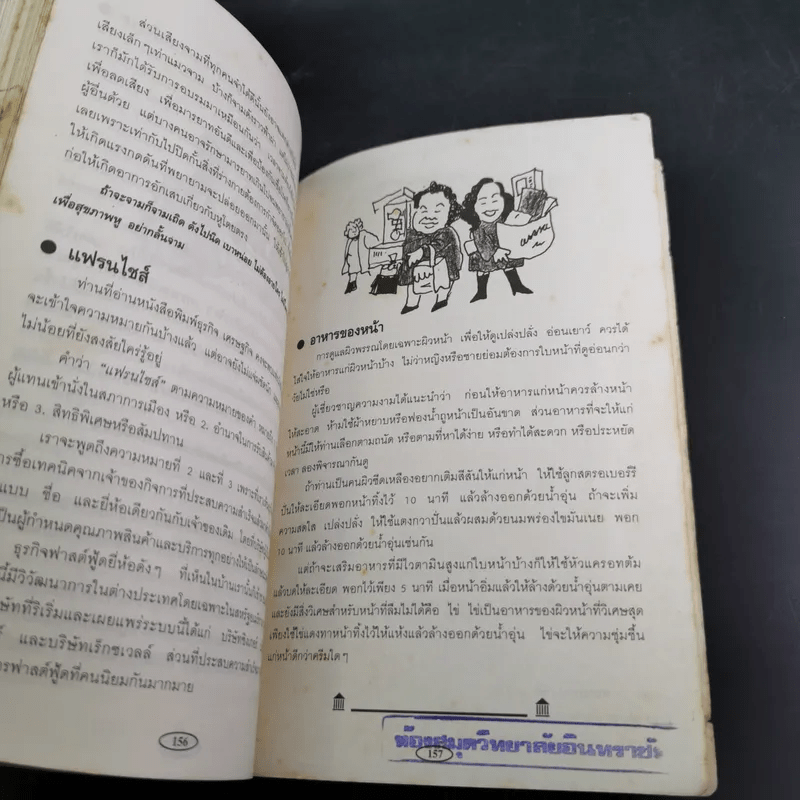 ส่วนเสียงจามที่ทุกคนจำได้ดีนั้น
เสียงเล็กๆเท่าแมวจาม บ้างก็จามดังราวฟ้าผ่า
เราก็มักได้รับการอบรมมาเหมือนกันว่า
เพื่อลดเสียง เพื่อมารยาทอันดีและเพื่อป้องกัน
ผู้อื่นด้วย แต่บางคนอาจรักษามารยาทเกินไป
เลยเพราะเท่ากับไปปิดกั้นสิ่งที่ร่างกายต้องการ
ให้เกิดแรงกดดันที่พยายามจะปล่อยออกมานั้น
ก่อให้เกิดอาการอักเสบเกี่ยวกับหูโดยตรง
ถ้าจะจามก็จามเถิด ดังไปนิด เบาหน่อย ไม่ต้อง
เพื่อสุขภาพหู อย่ากลั้นจาม
● แฟรนไชส์
ท่านที่อ่านหนังสือพิมพ์ธุรกิจ เศรษฐกิจ
จะเข้าใจความหมายกันบ้างแล้ว แต่อาจยังไม่
ไม่น้อยที่ยังสงสัยใคร่รู้อยู่
คำว่า "แฟรนไชส์" ตามความหมายของคำ
ผู้แทนเข้านั่งในสภาการเมือง หรือ 2. อำนาจในการ
หรือ 3. สิทธิพิเศษหรือสัมปทาน
เราจะพูดถึงความหมายที่ 2 และที่ 3 เพราะ
การซื้อเทคนิคจากเจ้าของกิจการที่ประสบความสำเร็จ
แบบ ชื่อ และยี่ห้อเดียวกันกับเจ้าของเดิม โดย
เป็นผู้กำหนดคุณภาพสินค้าและบริการทุกอย่างให้
ธุรกิจฟาสต์ฟู้ดยี่ห้อดังๆ ที่เห็นในบ้านเรานั้น
นี้มีวิวัฒนาการในต่างประเทศโดยเฉพาะในสหรัฐ
ษัทที่ริเริ่มและเผยแพร่ระบบนี้ได้แก่ บริษัทซิงเกอร์
และบริษัทเร็กซเวลล์ ส่วนที่ประสบความสำเร็จ
รฟาสต์ฟู้ดที่คนนิยมกันมากมาย
156
● อาหารของหน้า
การดูแลผิวพรรณโดยเฉพาะผิวหน้า เพื่อให้ดูเปล่งปลั่ง อ่อนเยาว์ ควรได้
ใส่ใจให้อาหารแก่ผิวหน้าบ้าง ไม่ว่าหญิงหรือชายย่อมต้องการใบหน้าที่ดูอ่อนกว่า
วัยไม่ใช่หรือ
ผู้เชี่ยวชาญความงามได้แนะนำว่า ก่อนให้อาหารแก่หน้าควรล้างหน้า
ให้สะอาด ห้ามใช้ผ้าหยาบหรือฟองน้ำถูหน้าเป็นอันขาด ส่วนอาหารที่จะให้แก่
หน้านี้มีให้ท่านเลือกตามถนัด หรือตามที่หาได้ง่าย หรือทำได้สะดวก หรือประหยัด
เวลา ลองพิจารณากันดู
ถ้าท่านเป็นคนผิวซีดเหลืองอยากเติมสีสันให้แก่หน้า ให้ใช้ลูกสตรอเบอร์รี
ปั่นให้ละเอียดพอกหน้าทิ้งไว้ 10 นาที แล้วล้างออกด้วยน้ำอุ่น ถ้าจะเพิ่ม
ความสดใส เปล่งปลั่ง ให้ใช้แตงกวาปั่นแล้วผสมด้วยนมพร่องไขมันเนย พอก
10 นาที แล้วล้างออกด้วยน้ำอุ่นเช่นกัน
แต่ถ้าจะเสริมอาหารที่มีไวตามินสูงแก่ใบหน้าบ้างก็ให้ใช้หัวแครอทต้ม
แล้วบดให้ละเอียด พอกไว้เพียง 5 นาที เมื่อหน้าอิ่มแล้วให้ล้างด้วยน้ำอุ่นตามเคย
และยังมีสิ่งวิเศษสำหรับหน้าที่ลืมไม่ได้คือ ไข่ ไข่เป็นอาหารของผิวหน้าที่วิเศษสุด
เพียงใช้ไข่แดงทาหน้าทิ้งไว้ให้แห้งแล้วล้างออกด้วยน้ำอุ่น ไข่จะให้ความชุ่มชื้น
แก่หน้าดีกว่าครีมใดๆ
157
ห้องสมุดวิทยาลัยอินทราชัย